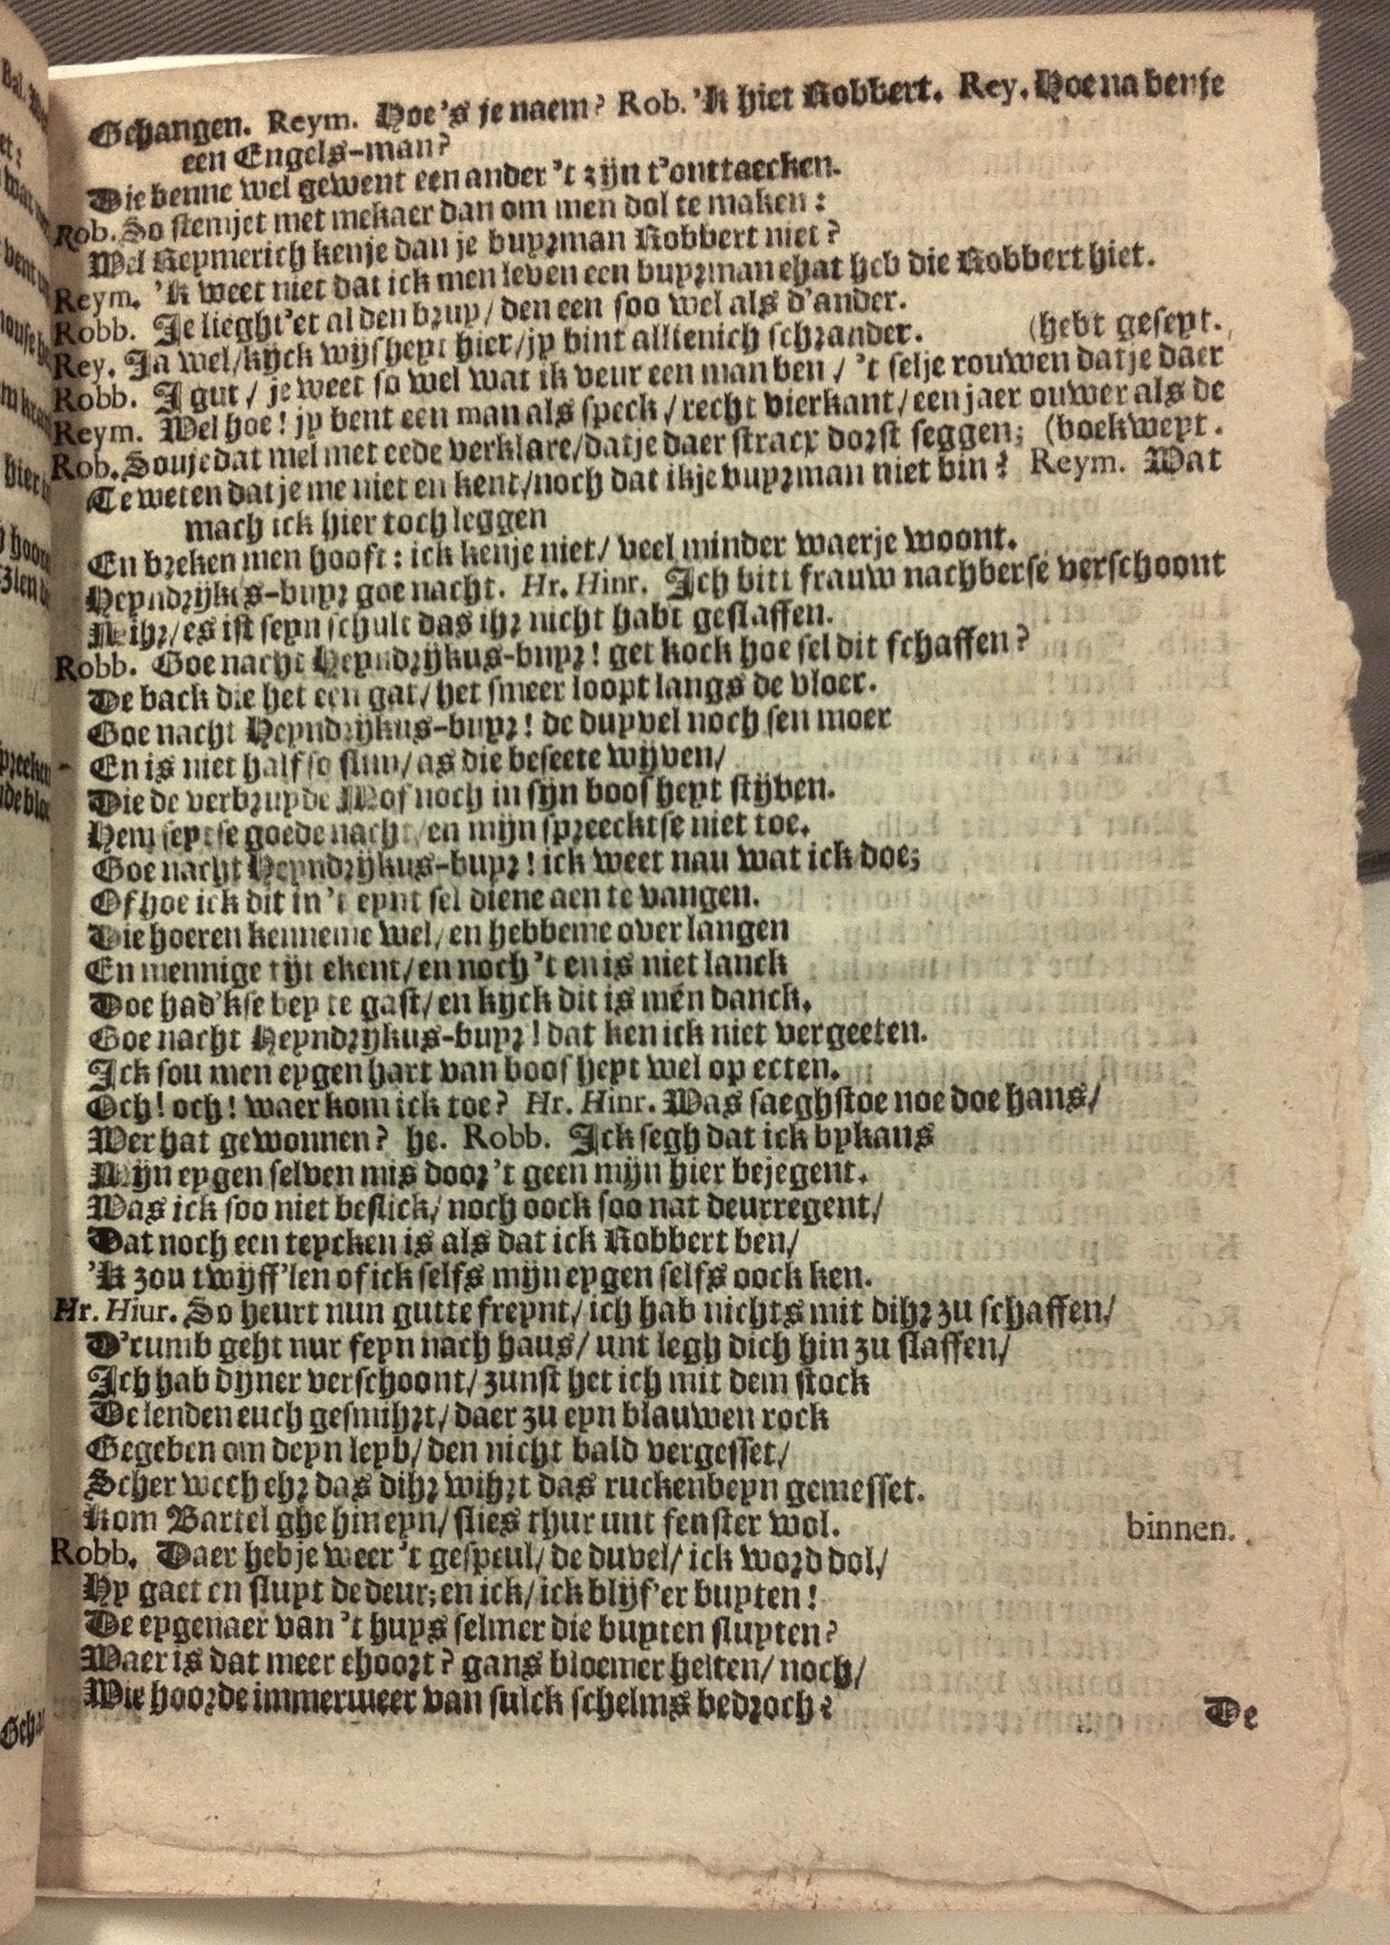 Gehangen. Reym. Hoe's je naem? Rob. 'k hiet Robbert. Rey. Hoe na benje
een Engels-man?
Die benne wel gewent een ander 't zijn t'onttaecken.
Rob. So stemjet met mekaer dan om men dol te maken:
Wel Reymerich kenje dan je buyrman Robbert niet?
Reym. 'k weet niet dat ick men leven een buyrman ehat heb die Robbert hiet.
Robb. Je lieght'et al den bruy/ den een soo wel als d'ander.
Rey. Ja wel/ kyck wijsheyt hier/ jy bint allienich schrander. (hebt geseyt.
Robb. J gut/ je weet so wel wat ik veur een man ben/ 't selje rouwen datje daer
Reym. Wel hoe! jy bent een man als speck/ recht vierkant/ een jaer ouwer als de
Rob. Souje dat mel met eede verklare/ datje daer stracx dorst seggen; (boekweyt.
Te weten datje me niet en kent/ noch dat ikje buyrman niet bin? Reym. Wat
mach ick hier toch leggen
En breken men hooft: ick kenje niet/ veel minder waerje woont.
Heyndrijkus-buyr goe nacht. Hr. Hinr. Ich bitt frauw nachberse verschoont
Mihr/ es ist seyn schult das ihr nicht habt geslaffen.
Robb. Goe nacht Heyndrijkus-buyr! get kock hoe sel dit schaffen?
De back die het een gat/ het smeer loopt langs de vloer.
Goe nacht Heyndrijkus-buyr! de duyvel noch sen moer
En is niet half so slim/ as die beseete wijven/
Die de verbruyde Mof noch in sijn boosheyt stijven.
Hem seytse goede nacht/ en mijn spreecktse niet toe.
Goe nacht Heyndrijkus-buyr! ick weet nau wat ick doe;
Of hoe ick dit in 't eynt sel diene aen te vangen.
Die hoeren kenneme wel/ en hebbeme over langen
En mennige tijt ekent/ en noch 't en is niet lanck
Doe had'kse bey te gast/ en kyck dit is men danck.
Goe nacht Heyndrijkus-buyr! dat ken ick niet vergeeten.
Ick sou men eygen hart van boosheyt wel op eeten.
Och! och! waer kom ick toe? Hr. Hinr. Was saeghstoe noe doe hans/
Wer hat gewonnen? he. Robb. Ick segh dat ick bykans
Mijn eygen selven mis door 't geen mijn hier bejegent.
Was ick soo niet beslick/ noch oock soo nat deurregent/
Dat noch een teycken is als dat ick Robbert ben/
'k zou twijff'len of ick selfs mijn eygen selfs oock ken.
Hr. Hiur. So heurt nun gutte freynt/ ich hab nichts mit dihr zu schaffen/
D'rumb geht nur feyn nach haus/ unt legh dich hin zu slaffen/
Ich hab dyner verschoont/ zunst het ich mit dem stock
De lenden euch gesmihrt/ daer zu eyn blauwen rock
Gegeben om deyn leyb/ den nicht bald vergesset/
Scher wech ehr das dihr wihrt das ruckenbeyn gemesset.
Kom Bartel ghe hineyn/ slies thur unt fenster wol. binnen.
Robb. Daer hebje weer 't gespeul/ de duvel/ ick word dol/
Hy gaet en sluyt de deur; en ick/ ick blijf'er buyten!
De eygenaer van 't huys selmer die buyten sluyten?
Waer is dat meer ehoort? gans bloemerherten/ noch/
Wie hoorde immermeer van sulck schelms bedroch?
De